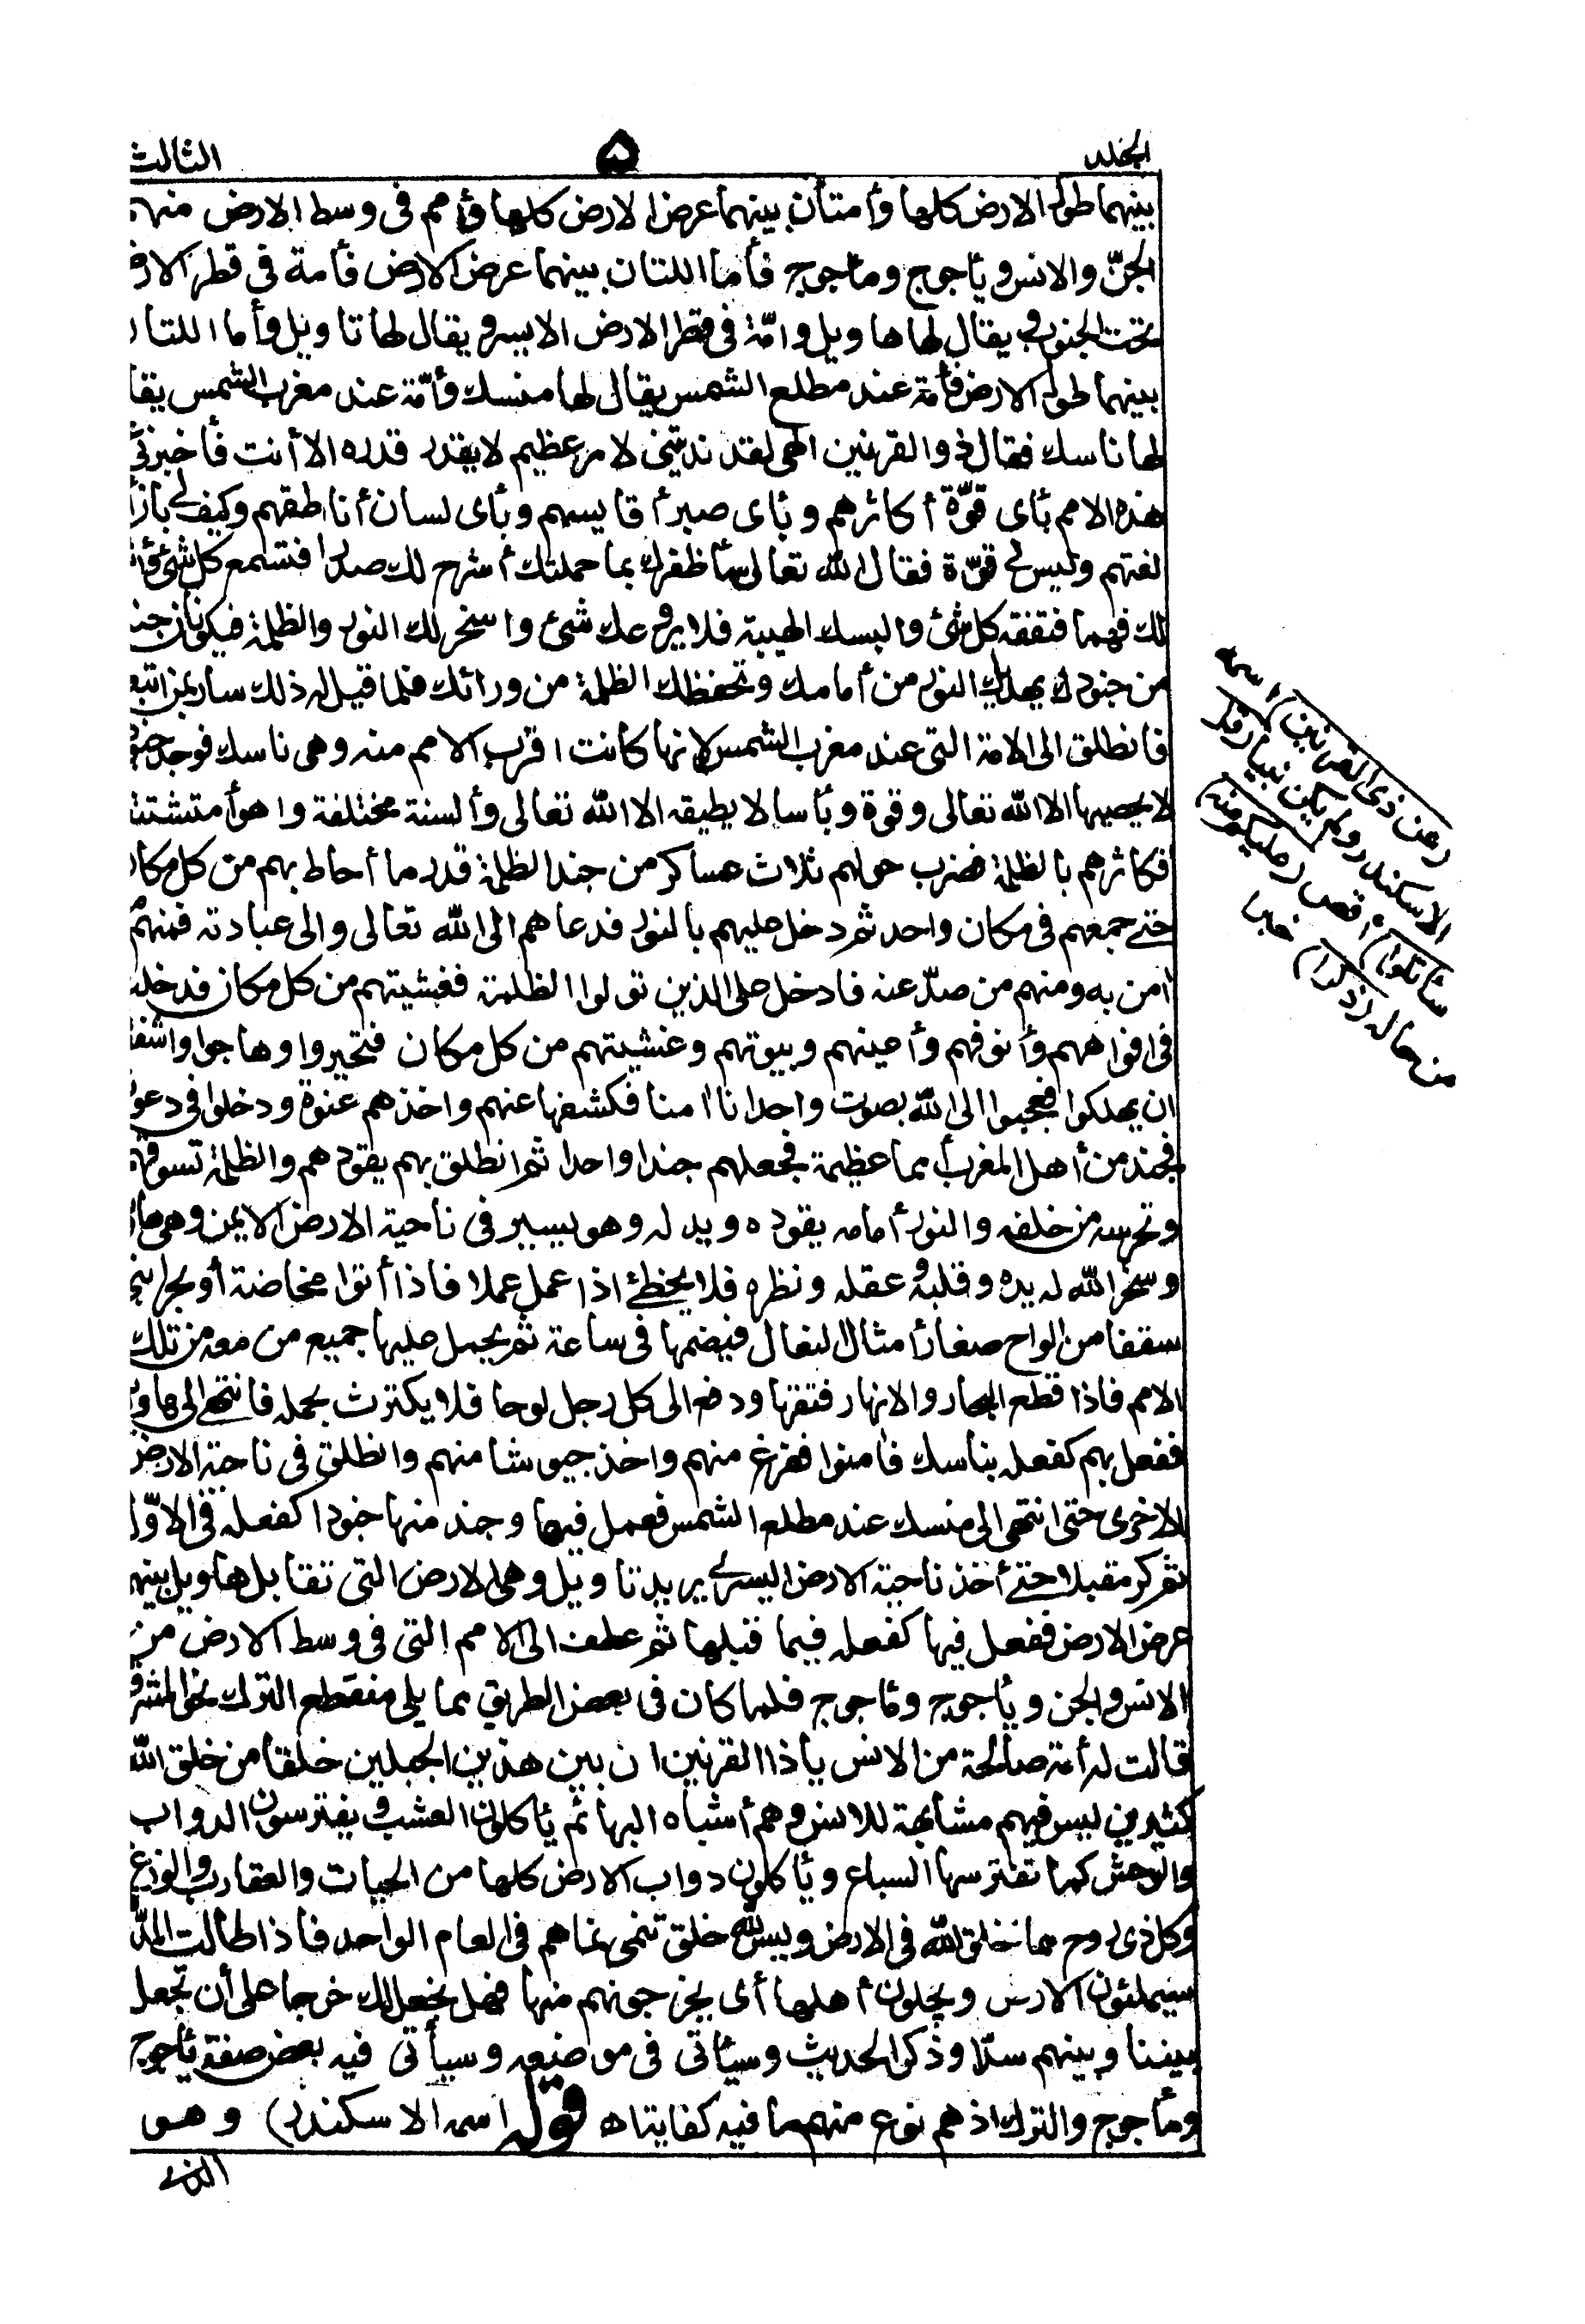 المجلد ٥ الثالث
بينهما طول الارض كلها وأمتأن بينهما عرض الارض كلها وأمم فى وسط الارض منهم
الجنّ والانس ويأجوج ومأجوج فأما اللتان بينهما عرض الارض فأمة فى قطر الارض
تحت الجنوب يقال لها هاويل وامّة فى قطر الارض الايسر يقال لها تاويل وأما اللتا
بينهما طول الارض فأمة عند مطلع الشمس يقال لها منسك وأمّة عند مغرب الشمس يقا
لها ناسك فقال ذو القرنين الهى لقد ندبتنى لامر عظيم لايقدر قدره الا أنت فأخبرنى
هذه الامم بأى قوّة أكاثرهم وبأى صبر أقايسهم وبأى لسان أناطقهم وكيف لى بأن
لغتهم وليس لى قوّة فقال الله تعالى سأظفرك بما حملتك أشرح لك صدرا فتسمع كل شئ
لك فهما فتفقه كل شئ والبسك الهيبة فلا يروعك شئ واسخر لك النور والظلمة فيكونان جند
من جنودك يهديك النور من أمامك وتحفظك الظلمة من ورائك فلما قيل له ذلك سار بمن اتبع
فانطلق الى الامة التى عند مغرب الشمس لانها كانت اقرب الامم منه وهى ناسك فوجد
لا يحصيها الا الله تعالى وقوة وبأسا لا يطيقه الا الله تعالى وألسنة مختلفة واهوأ متشتتة
فكاثرهم بالظلمة فضرب حولهم ثلاث عساكر من جند الظلمة قدر ما أحاط بهم من كل مكان
حتى جمعهم فى مكان واحد ثم دخل عليهم بالنور فدعاهم الى الله تعالى والى عبادته فمنهم
امن به ومنهم من صدّ عنه فادخل على الذين تولوا الظلمة فغشيتهم من كل مكان فدخلت
فى افواههم وأنوفهم وأعينهم وبيوتهم وغشيتهم من كل مكان فتحيروا وهاجوا واشفقوا
ان يهلكوا فعجبوا الى الله بصوت واحد انا امنا فكشفها عنهم واخذهم عنوة ودخلوا فى دعو
فجند من أهل المغرب أمما عظيمة فجعلهم جندا واحدا ثم انطلق بهم يقودهم والظلمة تسوقهم
وتحرسه من خلفه والنور أمامه يقوده ويدله وهو يسير فى ناحية الارض الايمن وهى ها
وسخر الله له يده وقلبه وعقله ونظره فلا يخطئ اذا عمل عملا فاذا أتوا مخاضة أو بحرا
سقفا من الواح صغار أمثال النعال فيضمها فى ساعة ثم يحمل عليها جميع من معه من تلك
الامم فاذا قطع البحار والانهار فتقها ودفع الى كل رجل لوحا فلا يكترث بحمله فانتهى الى هاويل
ففعل بهم كفعله بناسك فامنوا ففرغ منهم واخذ جيوشا منهم وانطلق فى ناحية الارض
الاخرى حتى انتهى الى منسك عند مطلع الشمس فعمل فيها وجند منها جنودا كفعله فى الاوّل
ثم كر مقبلا حتى أخذ ناحية الارض اليسرى يريد تاويل وهى الارض التى تقابل هاويل بينهما
عرض الارض ففعل فيها كفعله فيما قبلها ثم عطف الى الامم التى فى وسط الارض من
الانس والجن ويأجوج ومأجوج فلما كان فى بعض الطريق مما يلى منقطع الترك نحو المشرق
قالت له أمة صالحة من الانس ياذا القرنين ان بين هذين الجبلين خلقا من خلق الله
كثيرين ليس فيهم مشابهة للانس وهم أشباه البهائم يأكلون العشب ويفترسون الدواب
والوحش كما تفترسها السباع ويأكلون دواب الارض كلها من الحيات والعقارب والوزغ
وكل ذى روح مما خلق الله فى الارض وليس لله خلق تنمى نماهم فى العام الواحد فاذا طالت المدّة
سيملئون الارض ويجلون أهلها أى يخرجونهم منها فهل نجعل لك خرجا على أن تجعل
بيننا وبينهم سدّا وذكر الحديث وسيأتى فى موضعه وسيأتى فيه بعض صفة يأجوج
ومأجوج والترك اذ هم نوع منهم ما فيه كفاية اه قوله اسمه الاسكندر) وهو
الذى
(عن ذى القرنين) اسمه
الاسكندر ولم يكن نبيا (قل
سأتلوا) اقص (عليكم منه)
من حاله (ذكرا) خبرا